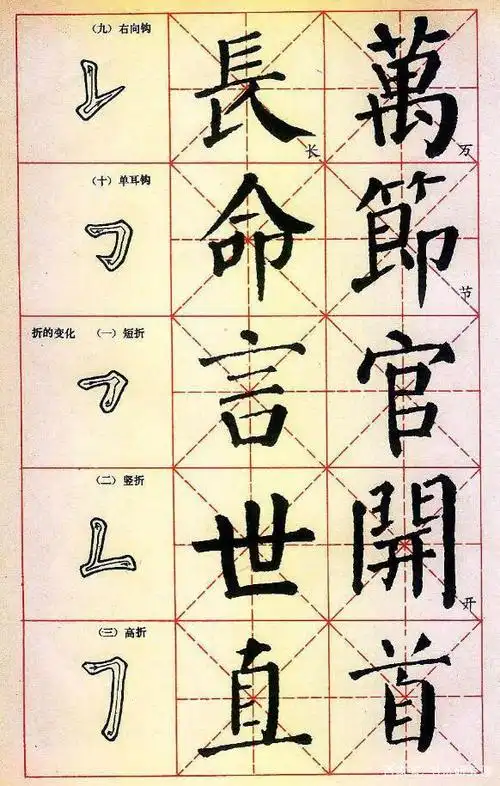 （九）右向钩
長 长 萬 万
（十）单耳钩
命 節 节
折的变化 （一）短折
言 官
（二）竖折
世 開 开
（三）高折
直 首